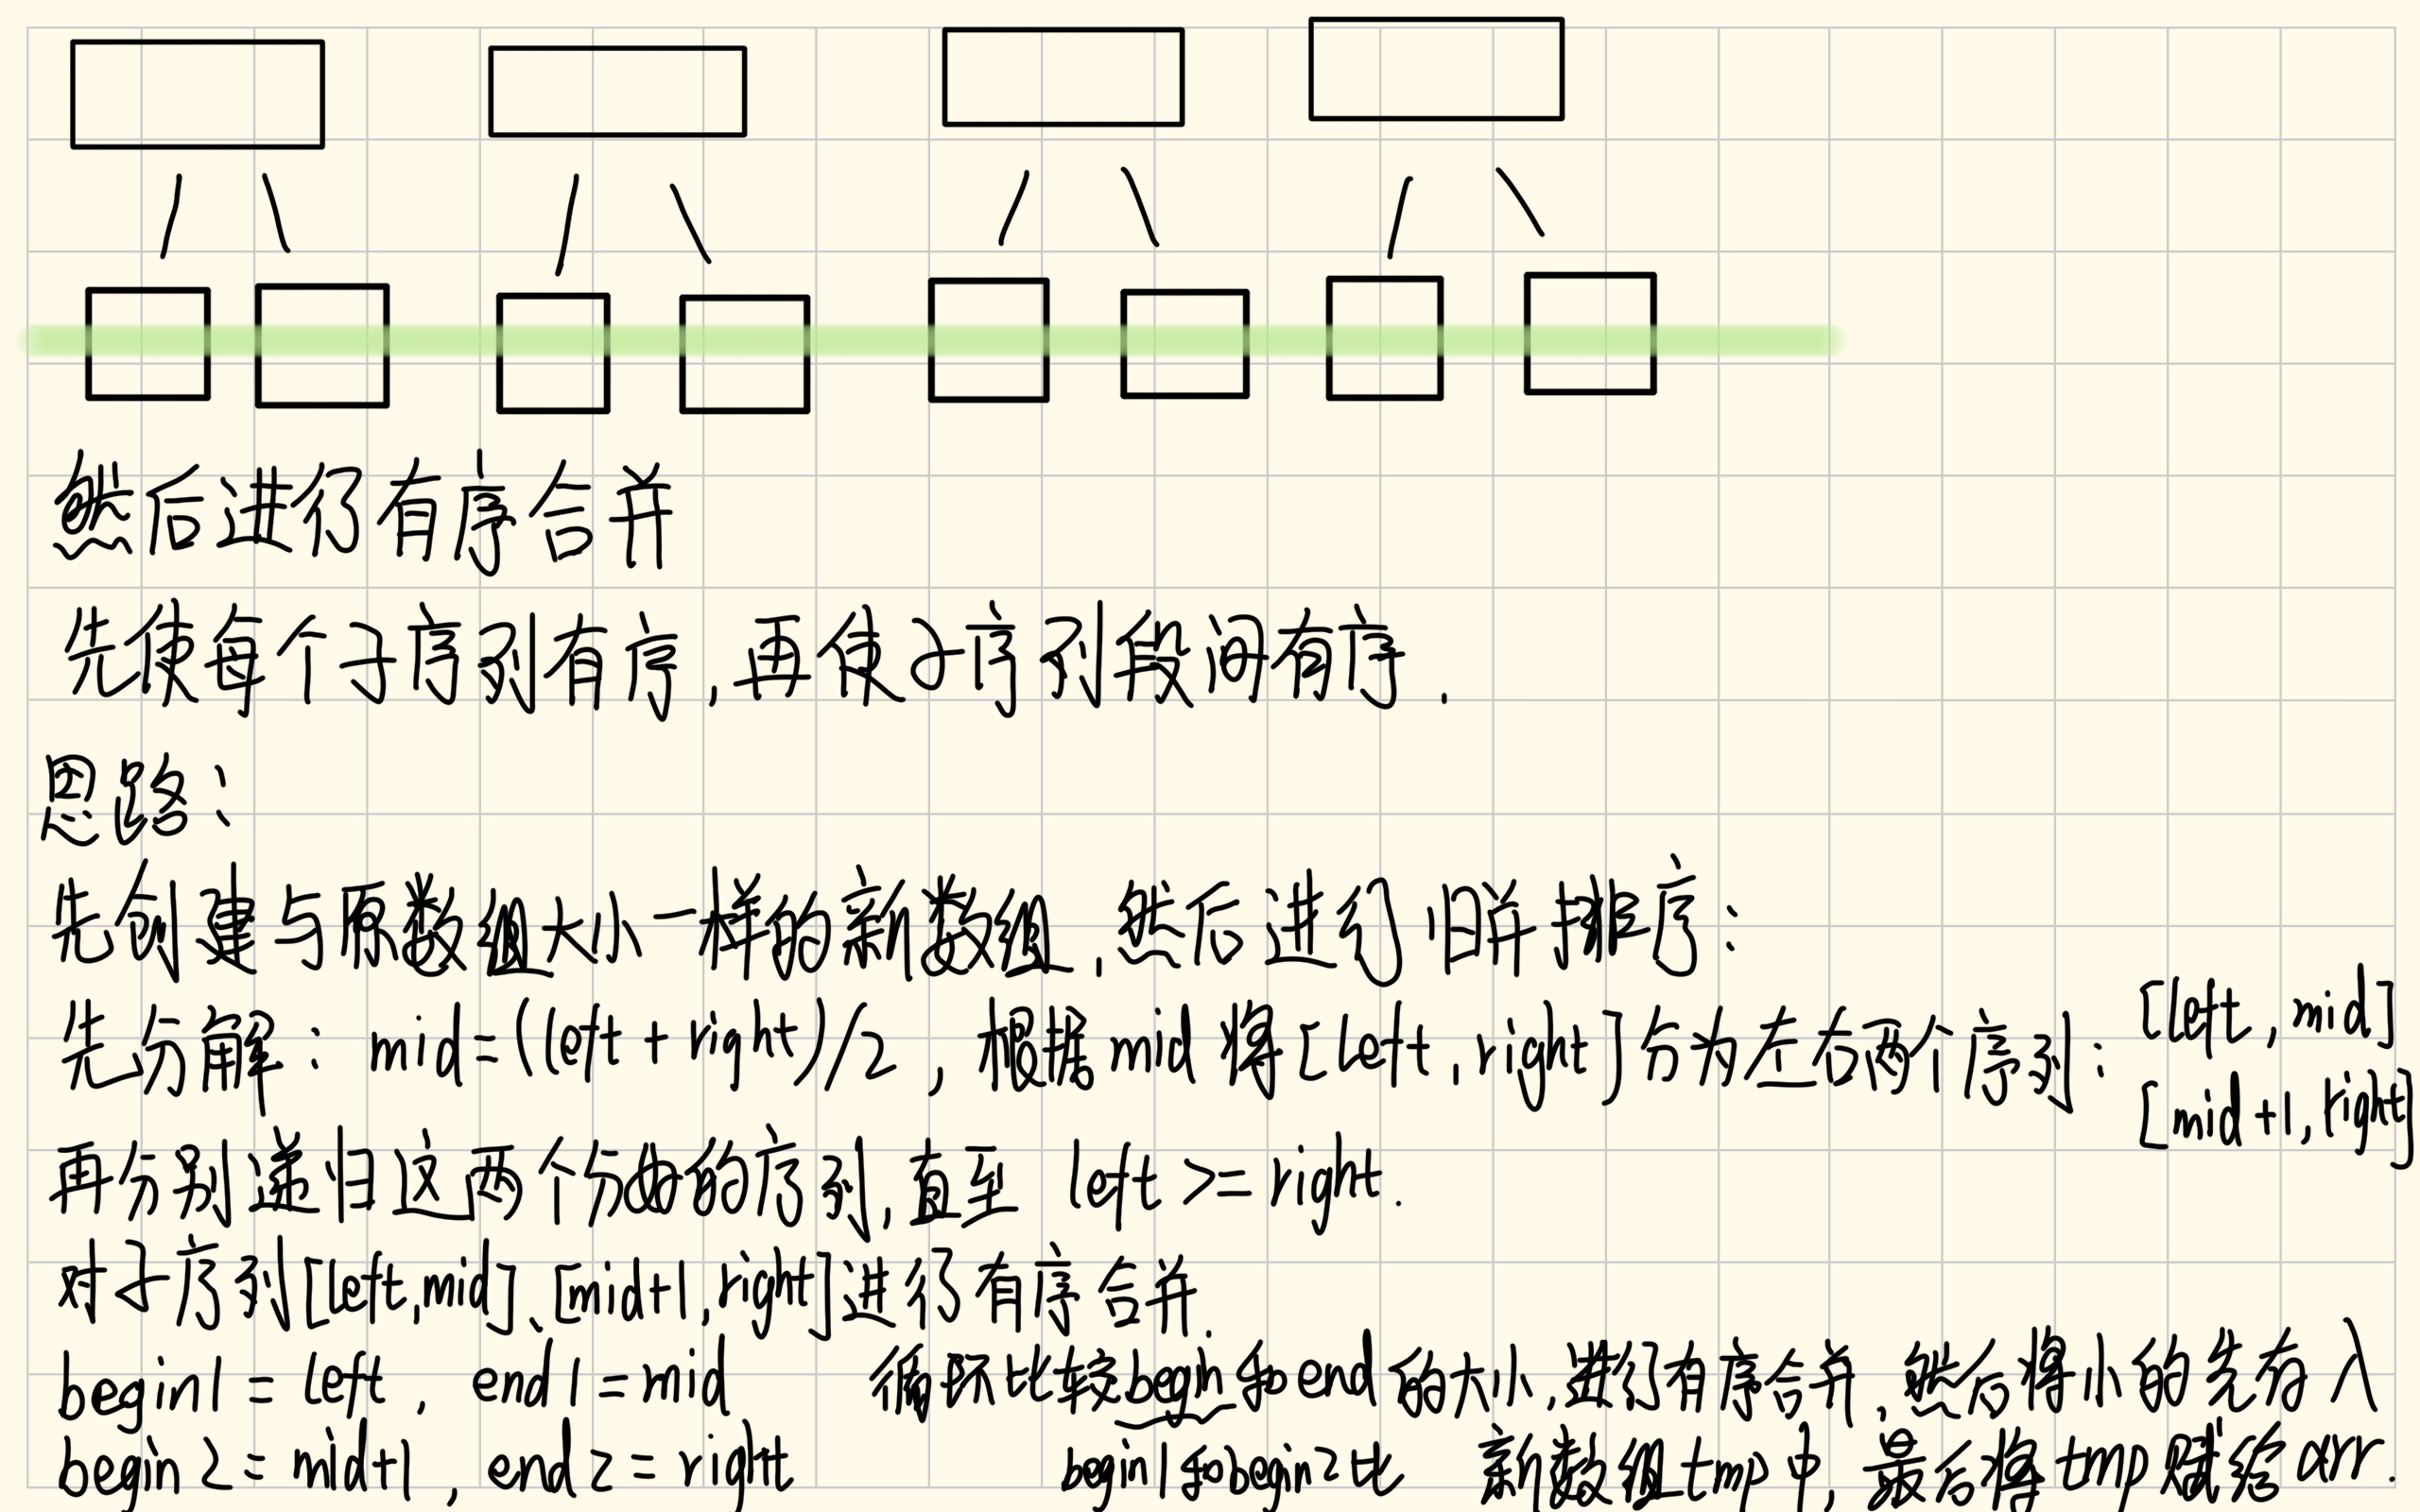 然后进行有序合并
先使每个子序列有序,再使子序列段间有序.
思路:
先创建与原数组大小一样的新数组,然后进行归并排序:
先分解: mid=(left+right)/2, 根据mid将[left,right]分为左右两个序列: [left,mid]
[mid+1,right]
再分别递归这两个分出的序列,直至 left>=right.
对子序列[left,mid]、[mid+1,right]进行有序合并.
begin1=left, end1=mid 循环比较begin和end的大小,进行有序合并,然后将小的先存入
begin2=mid+1, end2=right begin1和begin2比 新数组tmp中,最后将tmp赋给arr.